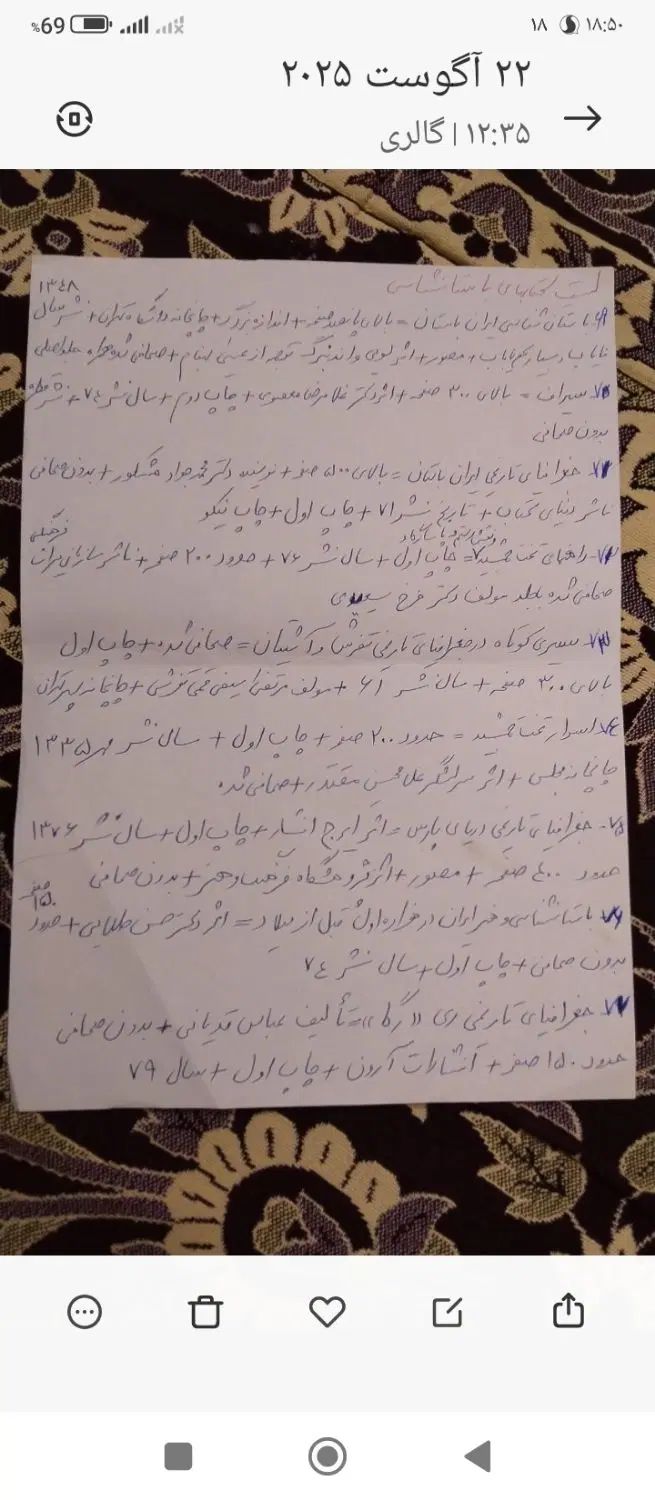 ۱۸:۵۰ ۱۸ %69
۲۲ آگوست ۲۰۲۵
۱۲:۳۵ | گالری
لیست کتابهای باستانشناسی
۱۳۴۸
باستان شناسی ایران باستان = بالای پانصد صفحه + اندازه بزرگ + چاپخانه دانشگاه تهران + نشر سال
نایاب و بسیار کم یاب + مصور + اثر لویی واندنبرگ ترجمه از عیسی بهنام + صحافی شده
۷۰- سیراف = بالای ۳۰۰ صفحه + اثر دکتر غلامرضا معصومی + چاپ دوم + سال نشر ۷۴ + نشر
بدون صحافی
۷۱- جغرافیای تاریخی ایران باستان = بالای ۵۰۰ صفحه + نویسنده دکتر محمدجواد مشکور + بدون صحافی
ناشر دنیای کتاب + تاریخ نشر ۷۱ + چاپ اول + چاپ نیکو
نقش رستم و پاسارگاد
فرهنگی
۷۲- راهنمای تخت جمشید = چاپ اول + سال نشر ۷۶ + حدود ۲۰۰ صفحه + ناشر سازمان میراث
صحافی شده با جلد مولف دکتر فرخ سعیدی
۷۳- سیری کوتاه در جغرافیای تاریخی تفرش و آشتیان = صحافی شده + چاپ اول
بالای ۳۰۰ صفحه + سال نشر ۶۱ + مولف مرتضی سیفی قمی تفرشی + چاپخانه
۷۴- اسرار تخت جمشید = حدود ۲۰۰ صفحه + چاپ اول + سال نشر مهر ماه ۱۳۳۵
چاپخانه مجلس + اثر سرلشگر غلامحسین مقتدر + صحافی شده
۷۵- جغرافیای تاریخی دریای پارس = اثر ایرج افشار + چاپ اول + سال نشر ۱۳۷۶
حدود ۴۰۰ صفحه + مصور + اثر پژوهشگاه فرهنگ و هنر + بدون صحافی
صفحه ۱۵۰
۷۶- باستانشناسی و هنر ایران در هزاره اول قبل از میلاد = اثر دکتر حسن طلایی + حدود
بدون صحافی + چاپ اول + سال نشر ۷۴
۷۷- جغرافیای تاریخی ری «رگا» = تألیف عباس قدیانی + بدون صحافی
حدود ۱۵۰ صفحه + انتشارات آرون + چاپ اول + سال ۷۹